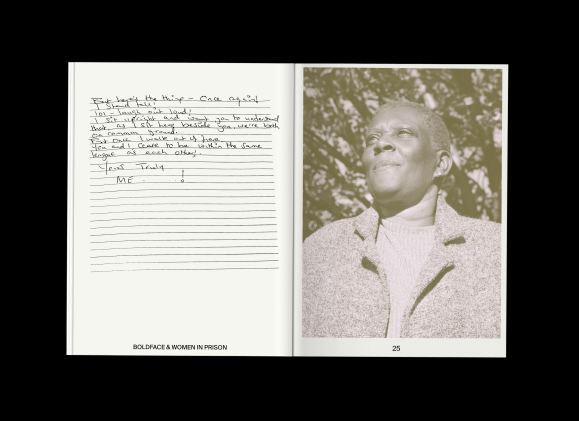 But here's the thing – Once again!
I Stand tall!
lol – laugh out loud!
I sit upright and want you to understand
that, as I sit here beside you, we're both
on common ground.
But once I walk out of here
You and I, cease to be within the same
league as each other.
Yours Truly
ME !
BOLDFACE & WOMEN IN PRISON
25